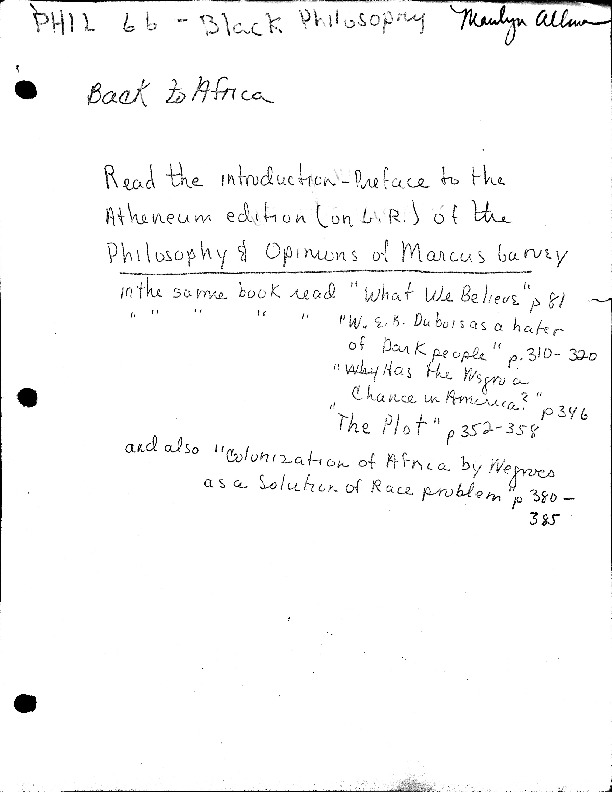 PHIL 66 - Black Philosophy Marilyn Allman
Back to Africa
Read the introduction-Preface to the
Atheneum edition (on L.R.) of the
Philosophy & Opinions of Marcus Garvey
in the same book read "What We Believe" p 81
" " " " " "W. E. B. Dubois as a hater
of Dark people" p. 310-320
"Why Has the Negro a
Chance in America?" p 346
"The Plot" p 352-358
and also "Colonization of Africa by Negroes
as a Solution of Race problem" p 380-
385